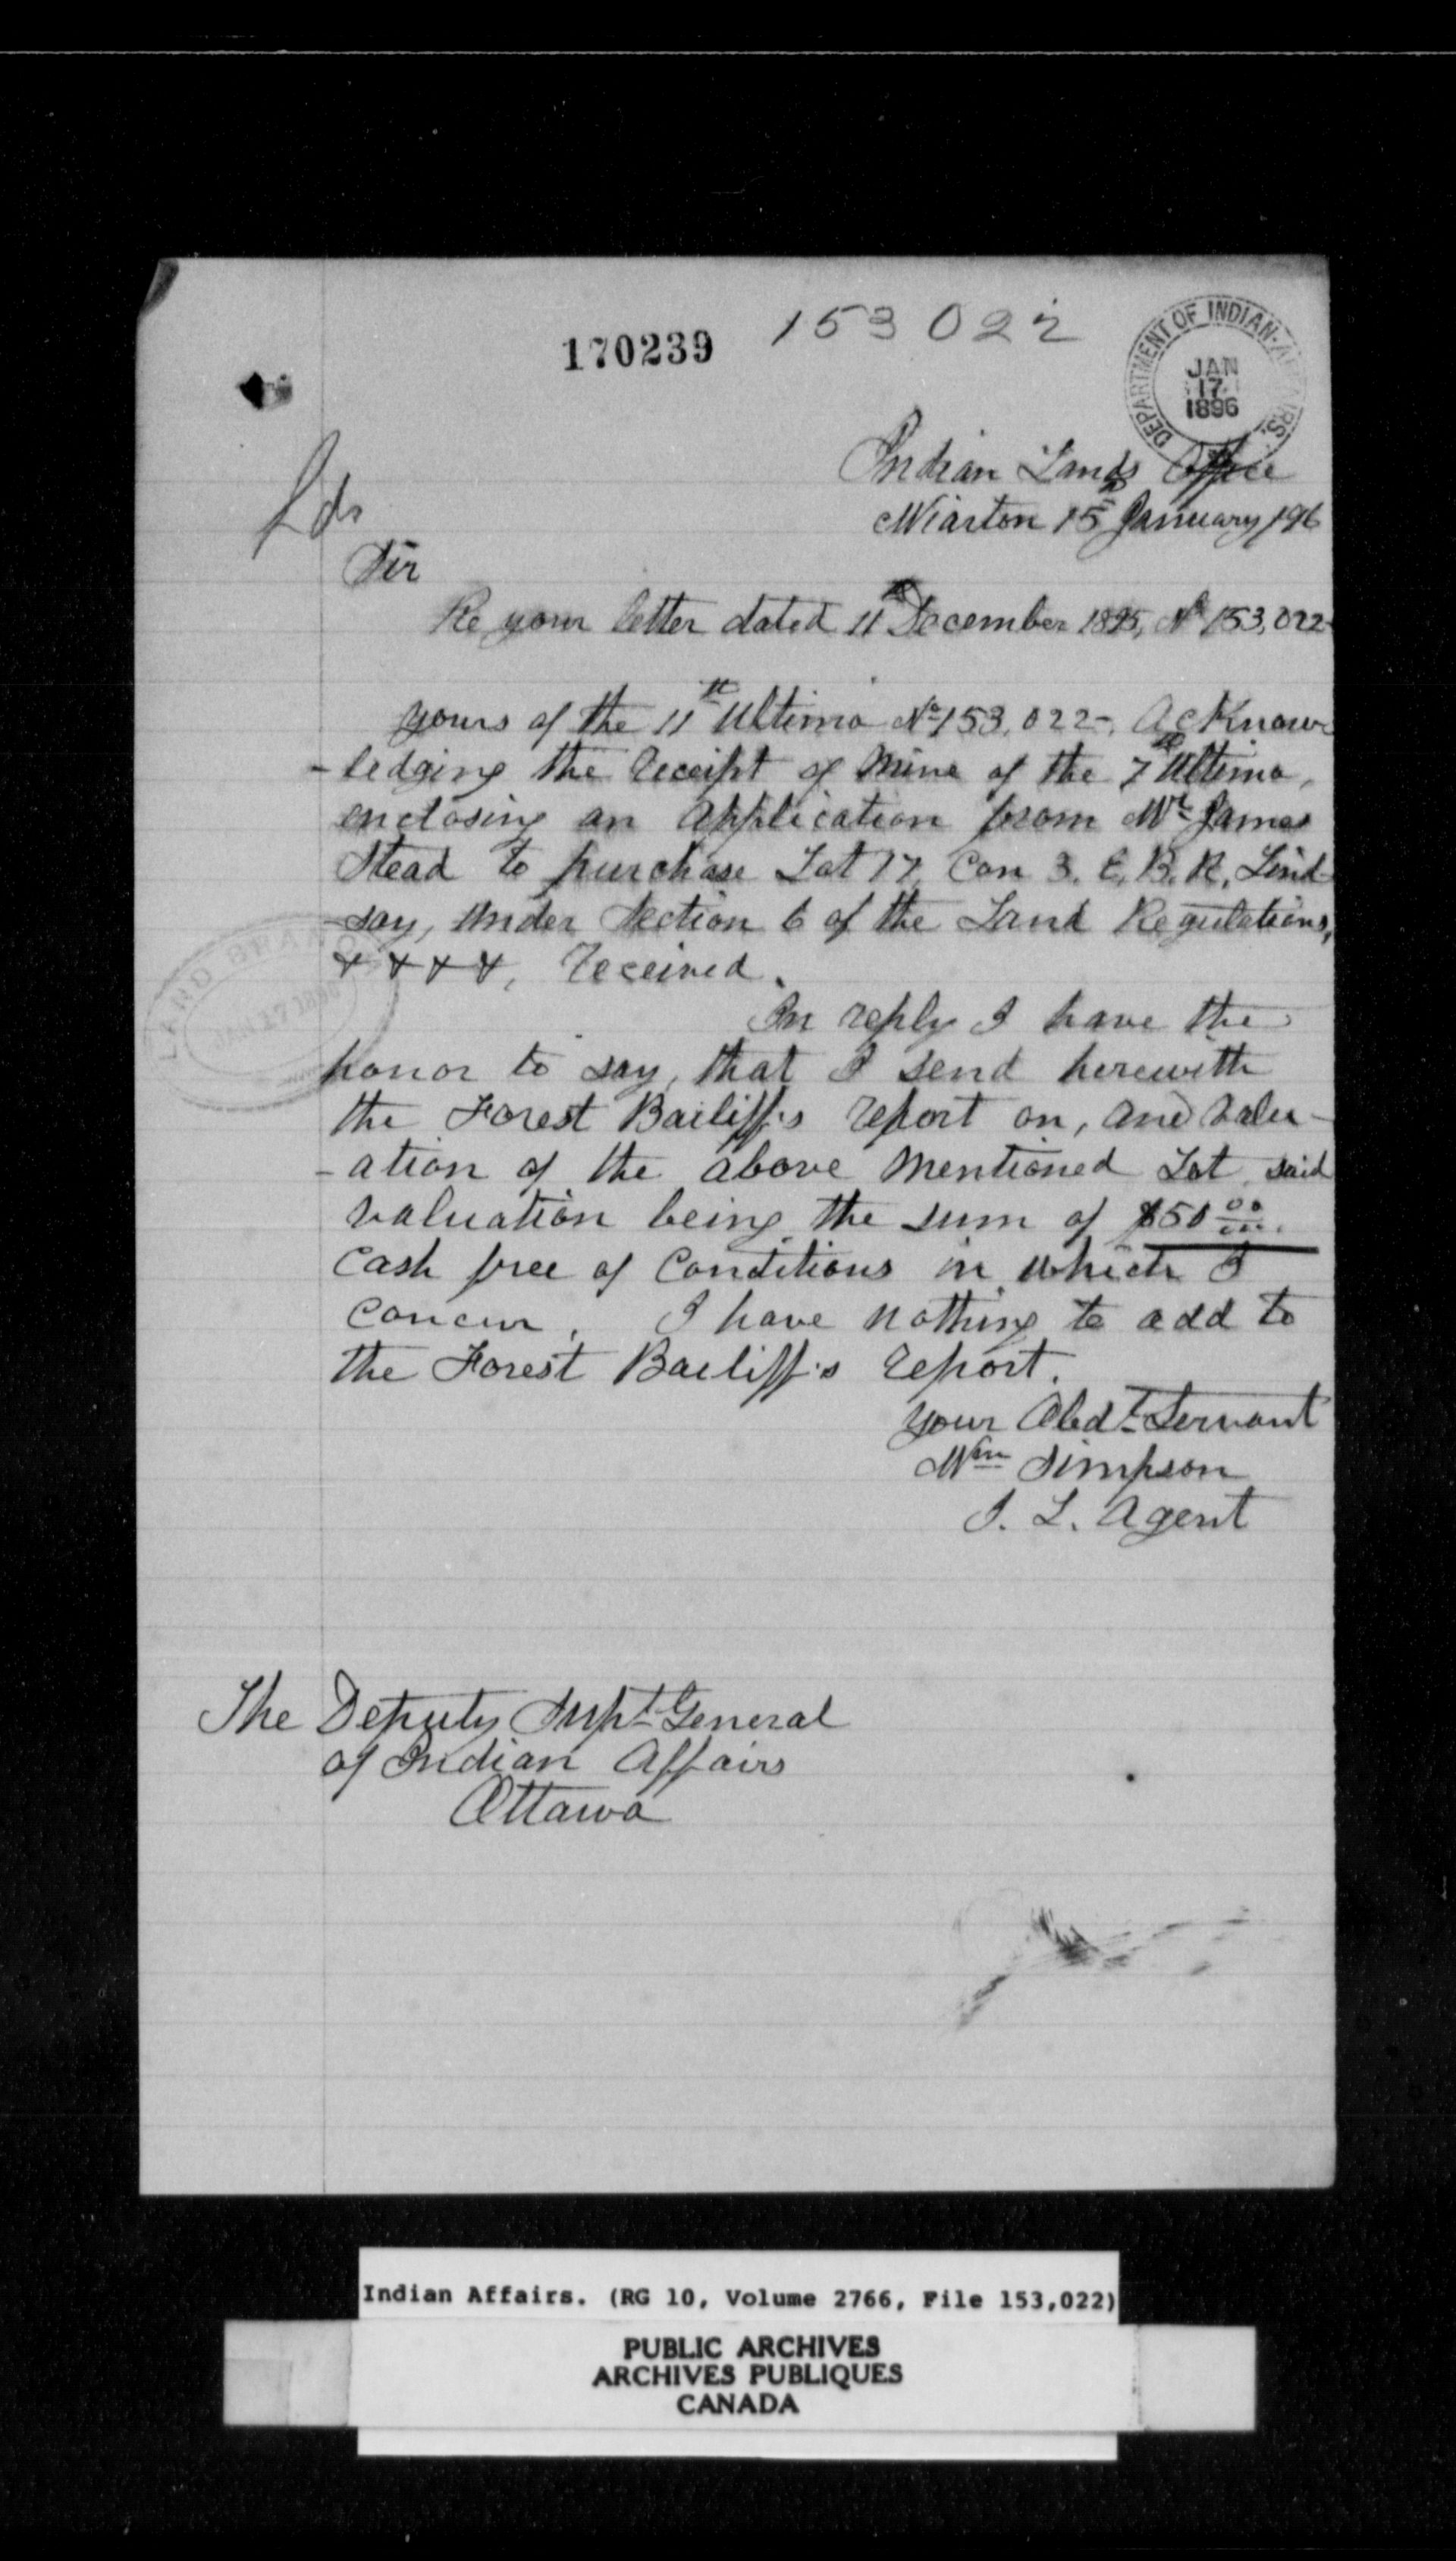 170239
153022
DEPARTMENT OF INDIAN AFFAIRS.
JAN
17
1896
Indian Lands Office
Wiarton 15th January /96
Lds
Sir
Re your letter dated 11th December 1895, No 153,022-
yours of the 11th Ultimo No 153,022-, Acknow-
-ledging the receipt of mine of the 7th Ultimo,
enclosing an application from Mr James
Stead to purchase Lot 17, Con 3. E. B. R. Lind-
-say, under Section 6 of the Land Regulations,
x x x x, received.
LAND BRANCH
JAN 17 1896
In reply I have the
honor to say, that I send herewith
the Forest Bailiff's report on, and valu-
-ation of the above mentioned Lot said
valuation being the sum of $50 00/...
Cash free of Conditions in which I
concur. I have nothing to add to
the Forest Bailiff's report.
your Obdt Servant
Wm Simpson
I. L. Agent
The Deputy Supt General
of Indian Affairs
Ottawa
Indian Affairs. (RG 10, Volume 2766, File 153,022)
PUBLIC ARCHIVES
ARCHIVES PUBLIQUES
CANADA